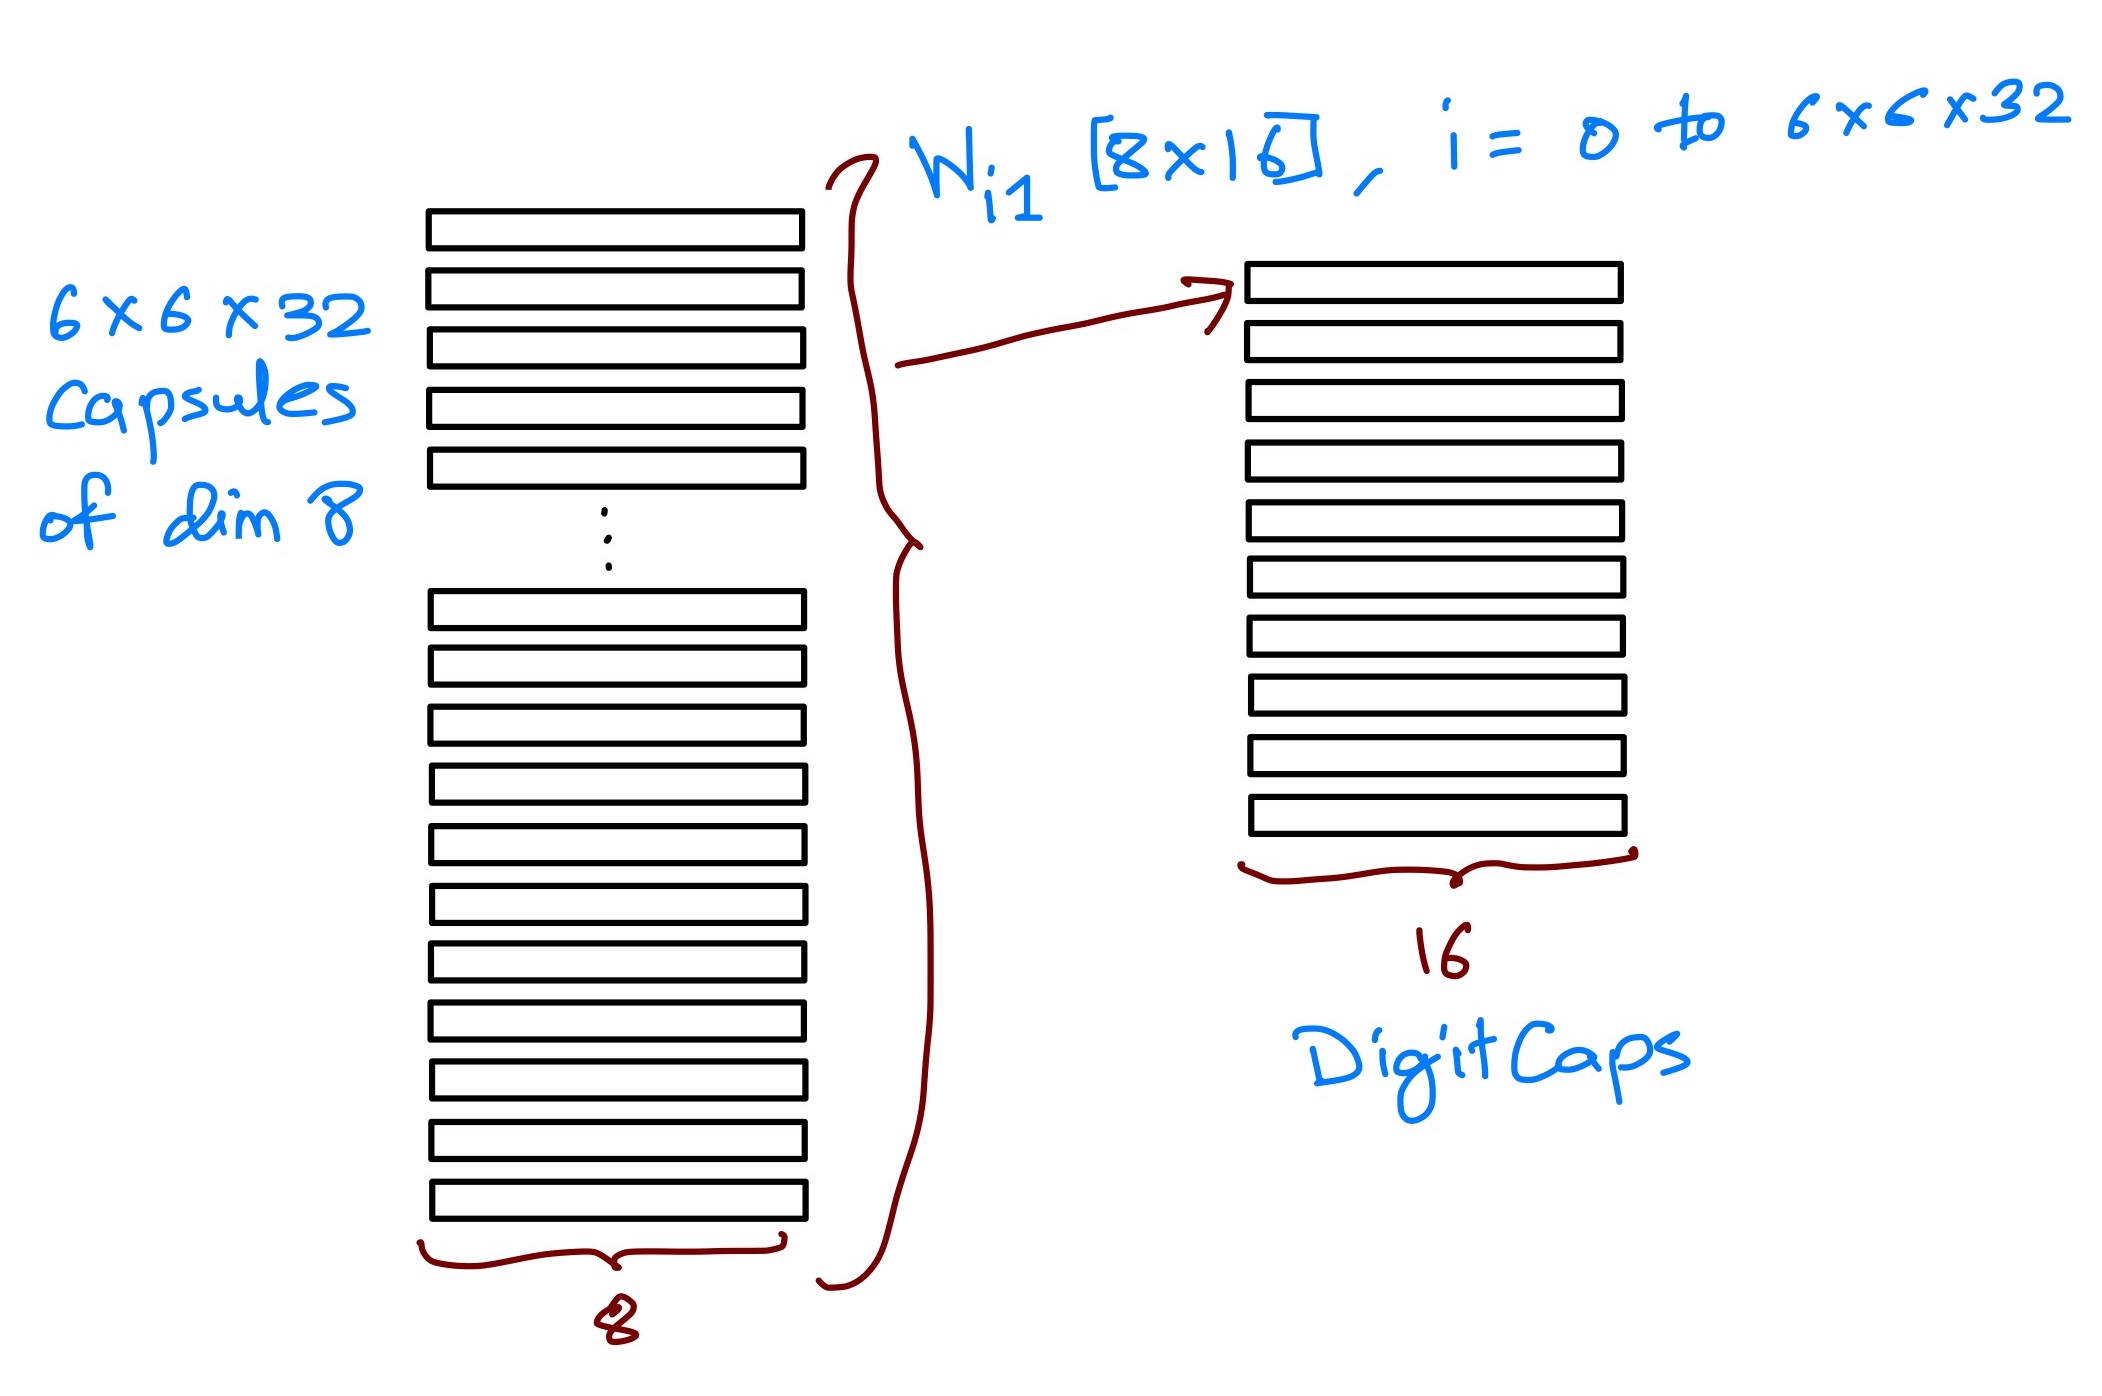 W_i1 [8x16], i = 0 to 6x6x32
6 x 6 x 32
Capsules
of dim 8
16
DigitCaps
8